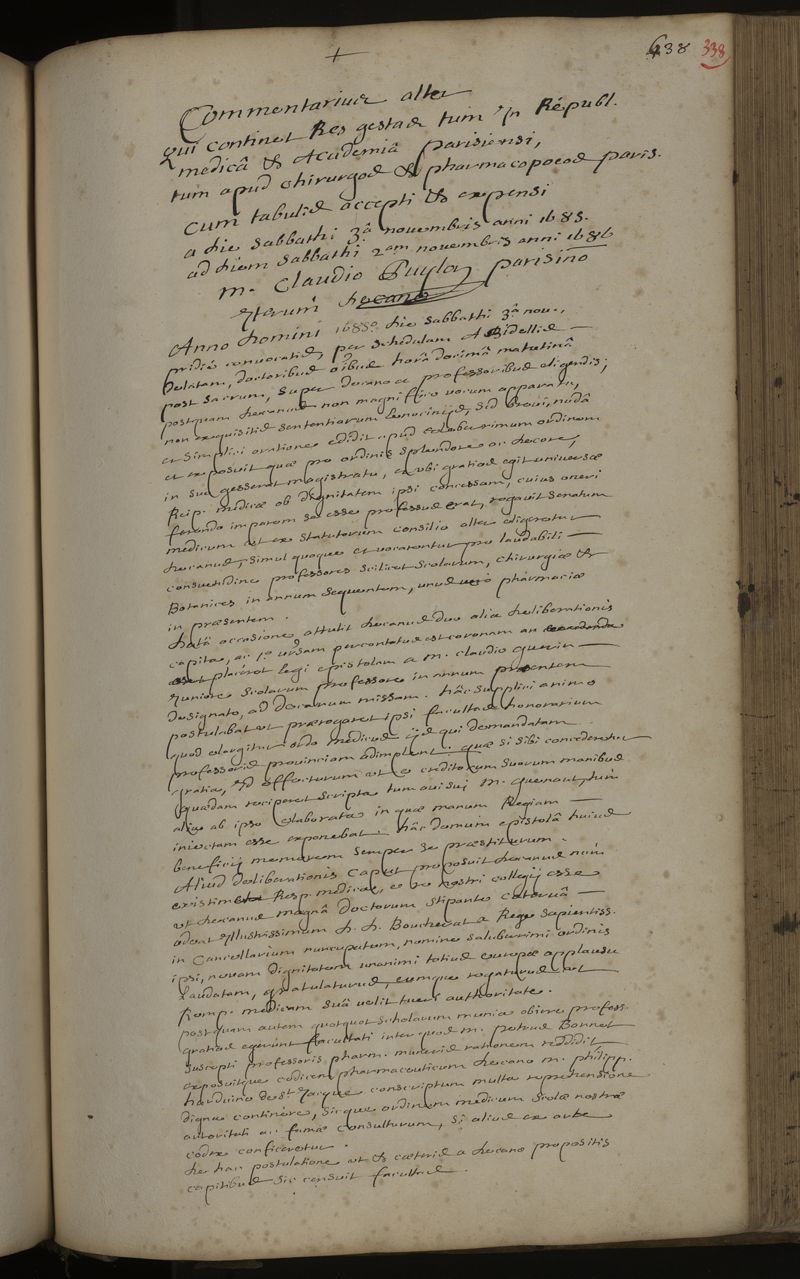 +
638 338
Commentarius alter
Qui continet Res gestas tum in Républ.
medicâ & Academiâ parisiensi,
tum apud chirurgos & pharmacopoeos paris.
cum tabulis accepti & expensi
a die sabbathi 3â novembris anni 1685.
ad diem sabbathi 2am novembris anni 1686
m. Claudio Puylon parisino
iterum decano
Anno domini 1685o die sabbathi 3â nov.,
pridie convocatis, per schedulam a Bidellis
delatam, doctoribus oĩbus horâ decimâ matutinâ
post sacrum, super decano ac professoribus eligendis;
postquam decanus non magnifico vocum apparatu,
non exquisitis sententiarum lenociniis, sed brevi, nudâ
et simplici oratione edidit apud saluberrimum ordinem
et exposuit quae pro ordinis splendore ac decore,
in suo gesserat magistratu, et ubi gratias egit universae
Reip. medicae ob dignitatem ipsi concessam, cuius oneri
ferendo imparem se esse professus erat, rogavit senatum
medicum ut ex statutorum consilio alter eligeretur
decanus, simul quoque et vocarentur pro laudabili
consuetudine professores scilicet scolarum, chirurgiae &
Botanices in annum sequentem, unus vero pharmaciae
in praesentem.
datâ occasione attulit decanus duo alia deliberationis
capita, ac 1o percontatus est coronam an
placeret legi epistolam a m. claudio quartier
iuniore scolarum professore in annum praesentem
designato, ad decanum missam. hâc supplici animo
postulabat ut praerogaret ipsi facultas honorarium
quod elargitur ordo medicus iis qui demandatam
professoris provinciam adimplent. quae si sibi concederetur
gratia, id effecturum ut e creditorum suorum manibus
quaedam reciperet scripta tum avi sui m. quenaut, tum
alia ab ipso elaborata in quae manum Regiam
iniectam esse exponebat. hâc demum epistolâ huius
beneficij memorem semper se praestiturum.
Aliud deliberationis caput proposuit decanus num
existiment Resp. medicae, e re nostri collegij esse
ut decanus magnâ doctorum stipante catervâ
adeat illustrissimum d. d. Boucherat a Rege sapientiss.
in Cancellarium nuncupatum, nomine saluberrimi ordinis
ipsi, novam dignitatem unanimi totius europae applausu
laudatam, gratulaturus, eumque rogaturus ut
Remp. medicam suâ velit tueri authoritate.
postquam autem quotquot scholarum munia obiere profess.
gratias egerunt facultati inter quos m. petrus Bonnet
suscepti professoris pharm. muneris rationem reddidit
exposuitque codicem pharmaceuticum decano m. philipp.
harduino de St Jacques conscriptum multa reprehensione
digna continere, sicque ordinem medicum scolae nostrae
autoritati ac famae consulturum, si alius ex arte
codex conficeretur.
de hac postulatione ut & caeteris a decano propositis
capitibus sic censuit facultas.